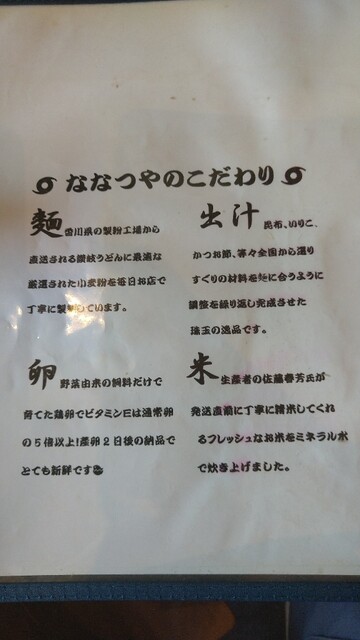 ななつやのこだわり
麺 香川県の製粉工場から
直送される讃岐うどんに最適な
厳選された小麦粉を毎日お店で
丁寧に製麺しています。
出汁 昆布、いりこ、
かつお節、等々全国から選り
すぐりの材料を麺に合うように
調整を繰り返し完成させた
珠玉の逸品です。
卵 野菜由来の飼料だけで
育てた鶏卵でビタミンEは通常卵
の5倍以上!産卵2日後の納品で
とても新鮮です
米 生産者の佐藤春芳氏が
発送直前に丁寧に精米してくれ
るフレッシュなお米をミネラルポ
で炊き上げました。